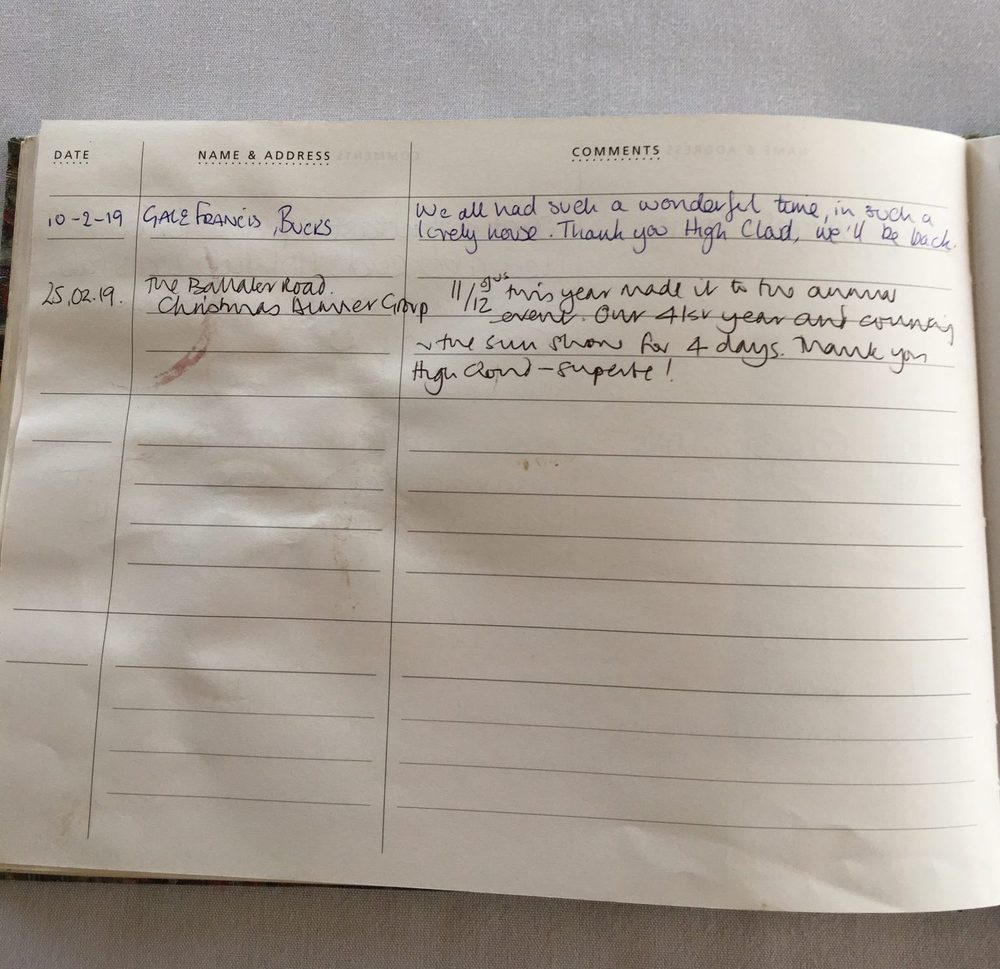 DATE NAME & ADDRESS COMMENTS
10-2-19 GALE FRANCIS, BUCKS We all had such a wonderful time, in such a
lovely house. Thank you High Clad, we'll be back.
25.02.19. The Ballater Road. 11/12 of us this year made it to the annual
Christmas Dinner Group event. Our 41st year and counting
the sun shone for 4 days. Thank you
High - superbe!